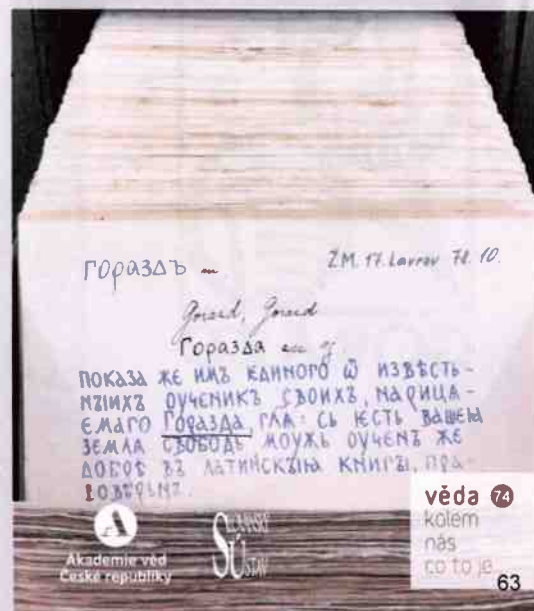 гораздъ m
ŽM. 17. Lavrov 78. 10.
Gorazd, Gorazd
Горазда m
ПОКАЗА ЖЕ ИМЪ ѤДИНОГО Ѿ ИЗВѢСТЬ-
НЪІИХЪ ОУЧЕНИКЪ СВОИХЪ, НАРИЦА-
ЕМАГО ГОРАЗДА, ГЛА: СЬ ѤСТЬ ВАШЕѨ
ЗЕМЛА СВОБОДЬ МОУЖЬ ОУЧЕНЪ ЖЕ
ДОБРѢ ВЪ ЛАТИНСКЪІѨ КНИГЪІ, ПРА-
ВОВѢРЬНЪ.
Akademie věd
České republiky
SLOVANSKÝ
ÚSTAV
věda 74
kolem
nás
co to je
63